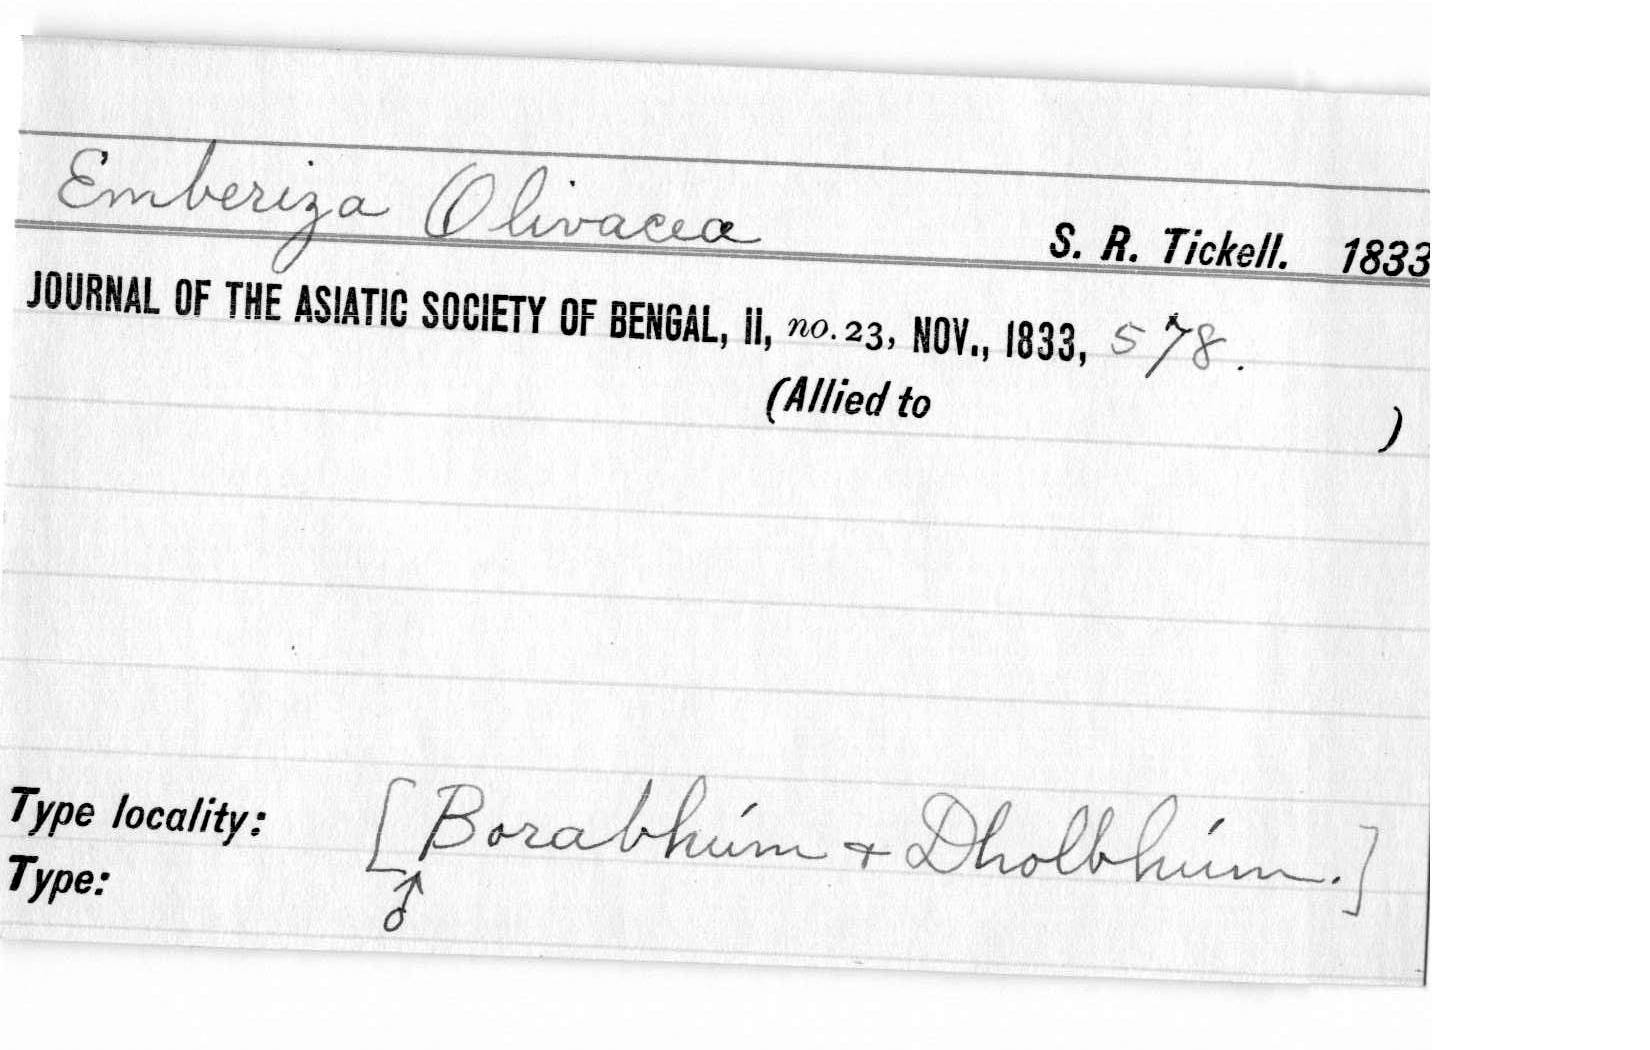 Emberiza Olivacea S. R. Tickell. 1833
JOURNAL OF THE ASIATIC SOCIETY OF BENGAL, ii, no. 23, NOV., 1833, 578.
(Allied to )
Type locality: [Borabhúm + Dholbhúm.]
Type: ♂